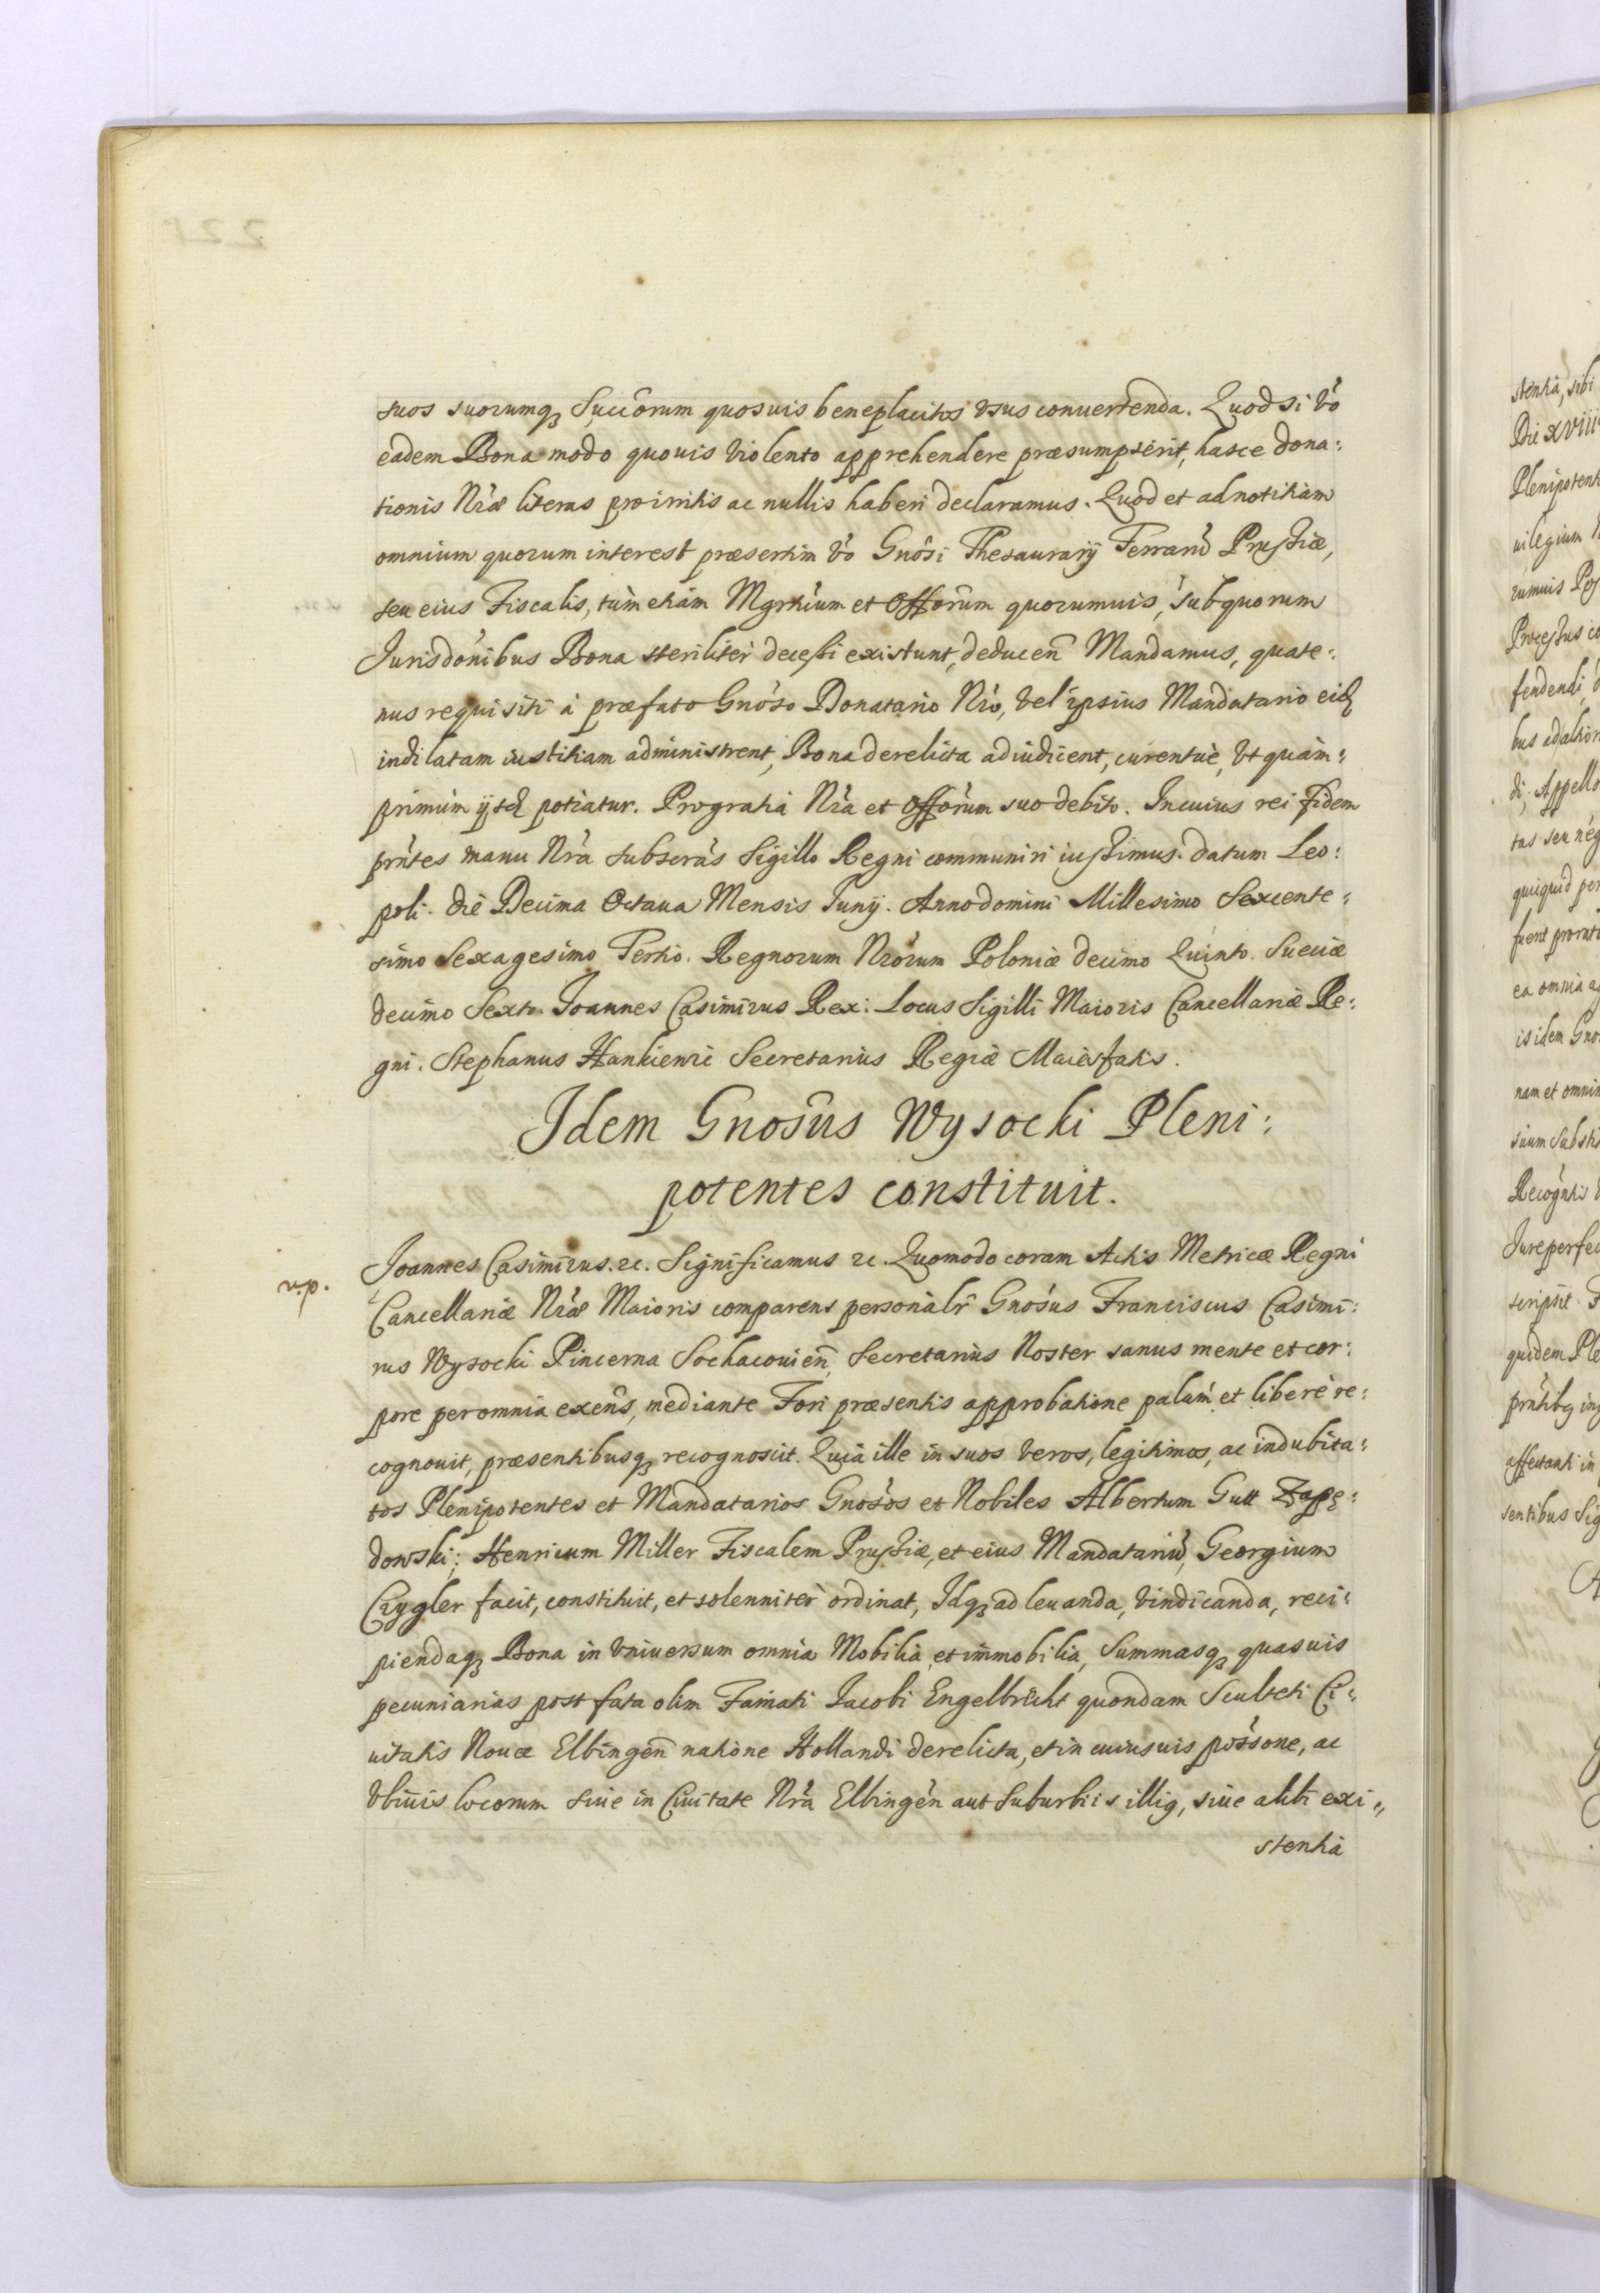 suos suorumq₃ Succorum quosuis beneplacitos vsus conuertenda. Quod si vo
eadem Bona modo quouis violento apprehendere præsumpserit, hasce dona:
tionis Nræ literas pro irritis ac nullis haberi declaramus. Quod et ad notitiam
omnium quorum interest præsertim vo Gnosi Thesaurarij Terrarū Prussiæ,
seu eius Fiscalis, tùm etiàm Mgrtuum et Offorum quorumuis, sub quorum
Jurisdonibus Bona steriliter decessi existunt, deducen Mandamus, quate:
nus requisiti à præfato Gnoso Donatario Nro, vel ipsius Mandatario eid
indilatam iustitiam administrent, Bona derelicta adiudicent, curentuè, vt quàm:
primùm ijsd potiatur. Pro gratia Nra et Offorum suo debito. In cuius rei fidem
prntes manu Nra subscras Sigillo Regni communiri iussimus. datum Leo:
poli. die Decima Octaua Mensis Junij. Anno domini Millesimo Sexcente:
simo Sexagesimo Tertio. Regnorum Nrorum Poloniæ decimo Quinto. Sueciæ
decimo Sexto. Joannes Casimirus Rex. Locus Sigilli Maioris Cancellariæ Re:
gni. Stephanus Hankiewic Secretarius Regiæ Maiestatis.
Idem Gnosus Wysocki Pleni:
potentes constituit.
v.p.
Joannes Casimirus. &c. Significamus &c. Quomodo coram Actis Metricæ Regni
Cancellariæ Nræ Maioris comparens personalr Gnosus Franciscus Casimi:
rus Wysocki Pincerna Sochacouien Secretarius Noster sanus mente et cor:
pore per omnia exens, mediante Fori præsentis approbatione palàm et liberè re:
cognouit, præsentibusq₃ recognoscit. Quià ille in suos veros, legitimos, ac indubita:
tos Plenipotentes et Mandatarios Gnosos et Nobiles Albertum Gutt Zapę:
dowski; Henricum Miller Fiscalem Prussiæ, et eius Mandatariū, Georgium
Czygler facit, constituit, et solenniter ordinat, Idq₃ ad leuanda, vindicanda, reci:
piendaq₃ Bona in vniuersum omnia Mobilia et immobilia, Summasq₃ quasuis
pecuniarias post fata olim Famati Jacobi Engelbricht quondam Sculteti Ci:
uitatis Nouæ Elbingen natione Hollandi derelicta, et in cuiusuis possone, ac
vbiuis locorum siue in Ciuitate Nra Elbingen aut Suburbiis illig, siue alibi exi:
stentia